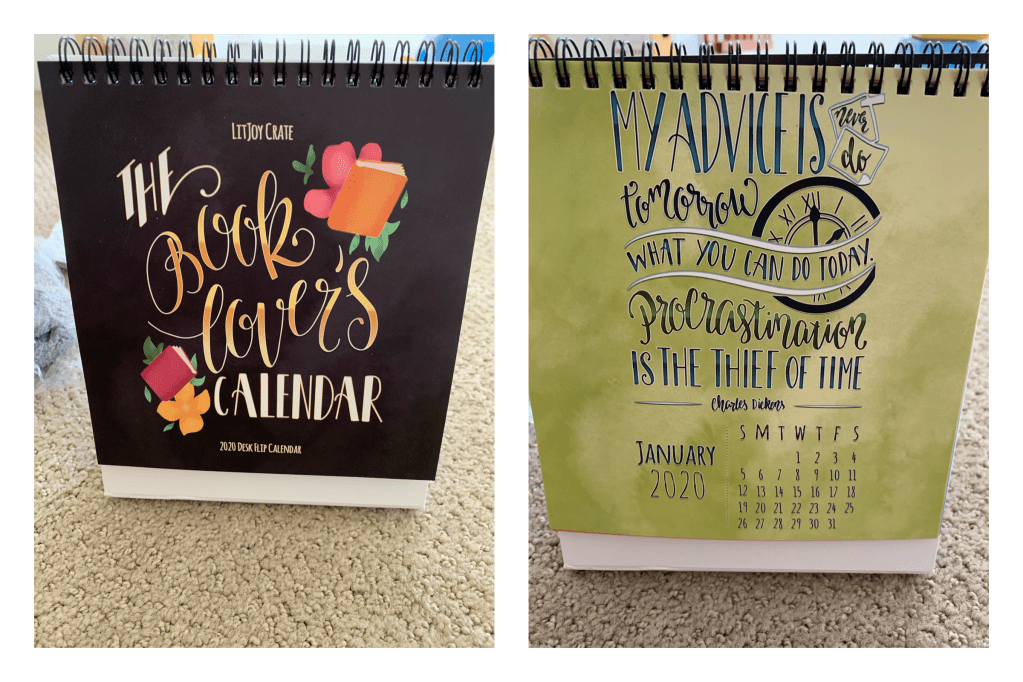 LITJOY CRATE
THE
BOOK
LOVER'S
CALENDAR
2020 DESK FLIP CALENDAR
MY ADVICE IS never
do
tomorrow
XI XII I
WHAT YOU CAN DO TODAY.
Procrastination
IS THE THIEF OF TIME
Charles Dickens
S M T W T F S
JANUARY
2020
1 2 3 4
5 6 7 8 9 10 11
12 13 14 15 16 17 18
19 20 21 22 23 24 25
26 27 28 29 30 31